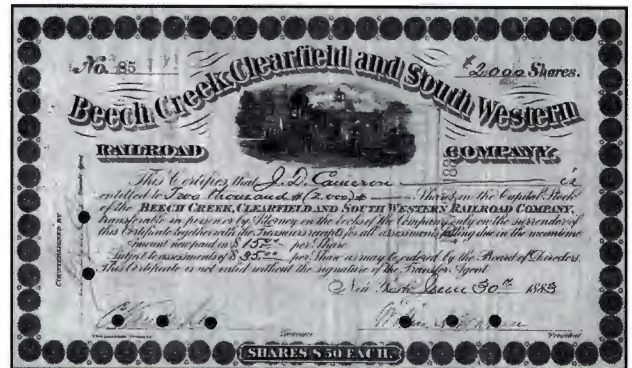 No. 85
$2.000 Shares.
Beech Creek, Clearfield and South Western
RAILROAD COMPANY.
This Certifies, that J. D. Cameron is
entitled to Two Thousand $(2.000)$ Shares in the Capital Stock
of the BEECH CREEK, CLEARFIELD AND SOUTH WESTERN RAILROAD COMPANY,
transferable in person or by Attorney on the books of the Company only on the surrender of
this Certificate together with the Treasurers receipts for all assessments falling due in the meantime
amount now paid in $15.00 per Share
Subject to assessments of $35.00 per Share as may be ordered by the Board of Directors.
This Certificate is not valid without the signature of the Transfer Agent
New York June 30th 1883
Treasurer
President
SHARES $50 EACH.
COUNTERSIGNED BY
Transfer Agent